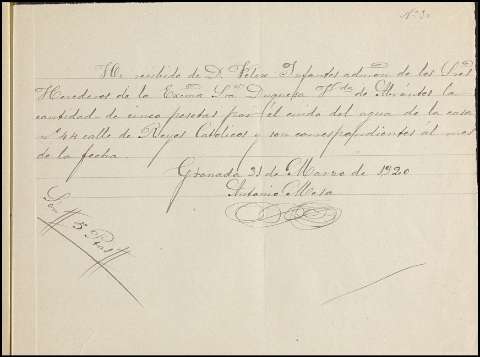 Nº 3.
He recibido de D. Felix Infantes admon de los Sres
Herederos de la Excma Sra Duquesa Vda de Abrantes la
cantidad de cinco pesetas por el cuido del agua de la casa
nº 44 calle de Reyes Catolicos y son correspondientes al mes
de la fecha.
Granada 31 de Marzo de 1920
Antonio Mesa
Son
5 Ptas